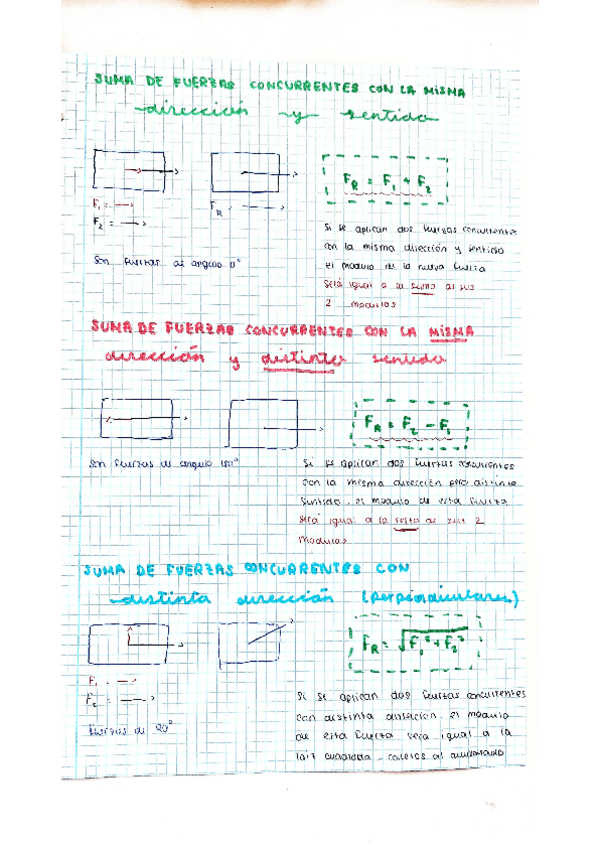 SUMA DE FUERZAS CONCURRENTES CON LA MISMA
dirección y sentido
F₁ =
F₂ =
F_R =
F_R = F₁ + F₂
Son fuerzas de angulo 0°
Si se aplican dos fuerzas concurrentes
con la misma dirección y sentido
el modulo de la nueva fuerza
será igual a la suma de sus
2 modulos
SUMA DE FUERZAS CONCURRENTES CON LA MISMA
dirección y distinto sentido
F_R = F₂ - F₁
Son fuerzas de angulo 180°
Si se aplican dos fuerzas concurrentes
con la misma dirección pero distinto
sentido, el modulo de esta fuerza
será igual a la resta de sus 2
modulos
SUMA DE FUERZAS CONCURRENTES CON
distinta dirección (perpendiculares)
F₁ =
F₂ =
F_R = √F₁² + F₂²
Fuerzas de 90°
Si se aplican dos fuerzas concurrentes
con distinta dirección, el modulo
de esta fuerza sera igual a la
raiz cuadrada